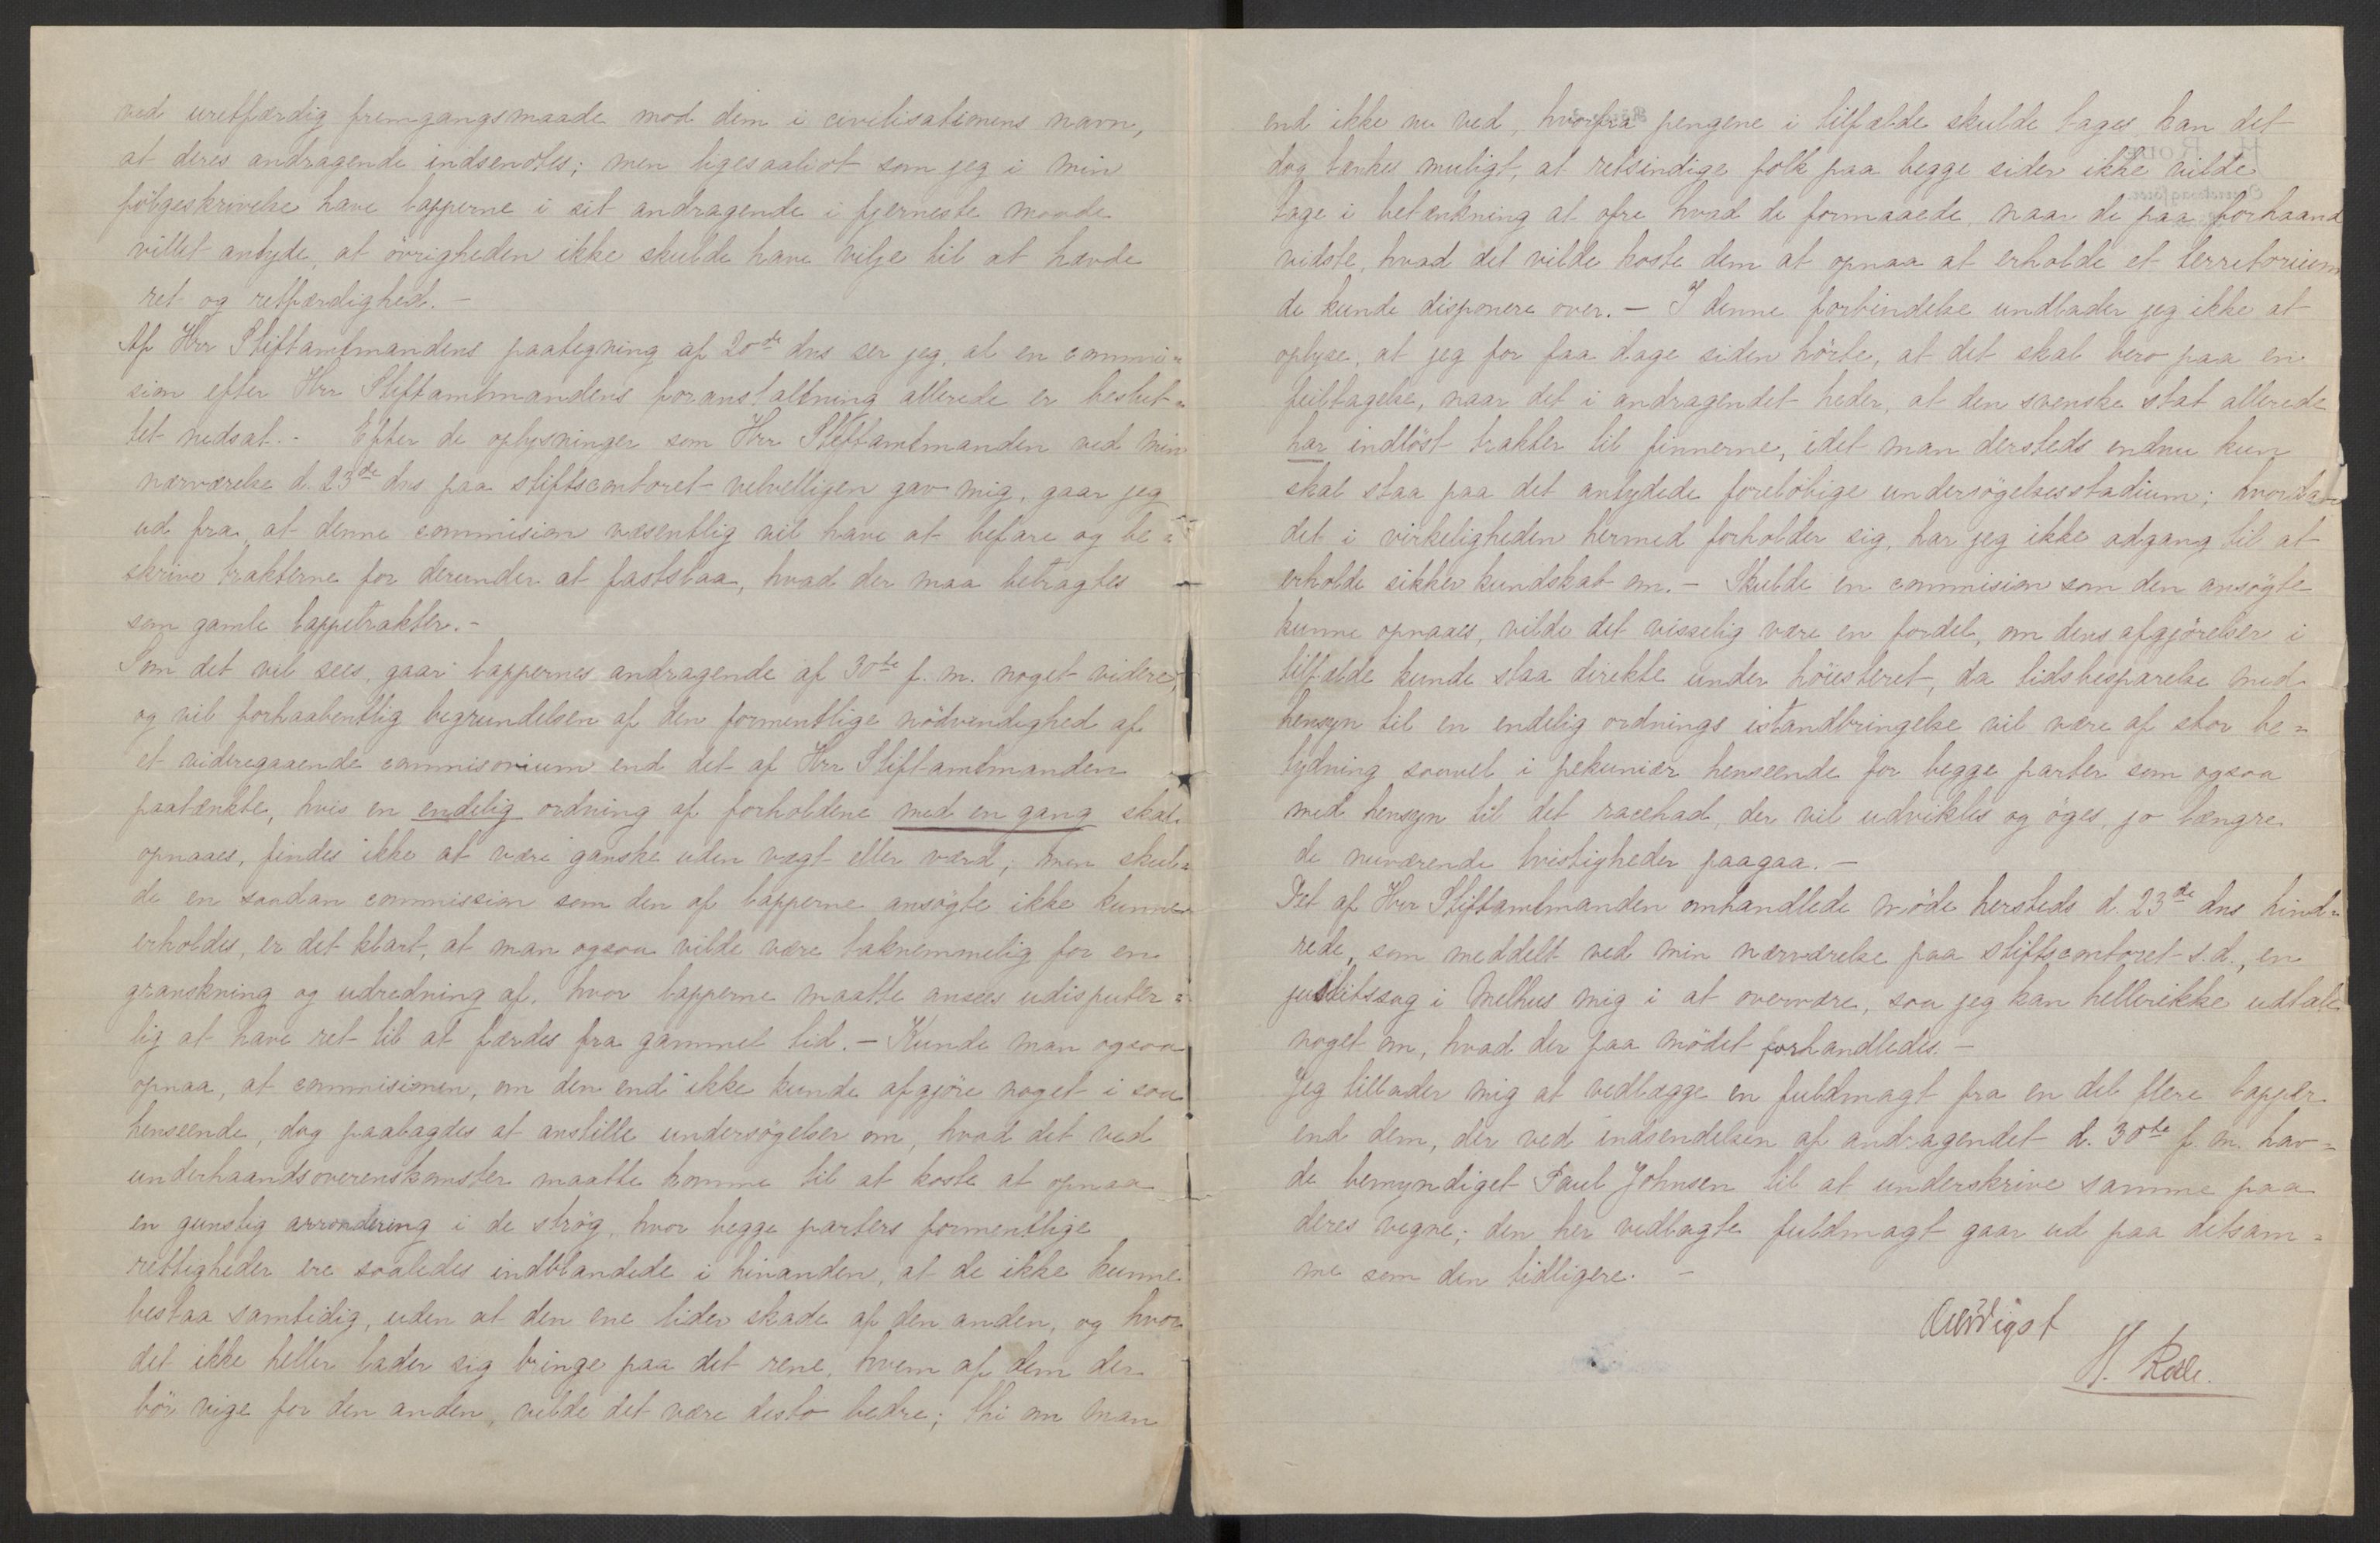 ved uretfærdig fremgangsmaade mod dem i civilisationens navn,
at deres andragende indsendtes; men ligesaalidt som jeg i min
følgeskrivelse have lapperne i sit andragende i fjerneste maade
villet antyde, at øvrigheden ikke skulde have vilje til at hævde
ret og retfærdighed. -
Af Herr Stiftamtmandens paategning af 20de dns ser jeg, at en commi=
sion efter Herr Stiftamtmandens foranstaltning allerede er beslut=
tet nedsat. - Efter de oplysninger som Herr Stiftamtmanden ved min
nærværelse d. 23de dns paa stiftscontoret velvilligen gav mig, gaar jeg
ud fra, at denne commision væsentlig vil have at befare og be=
skrive trakterne for derunder at fastslaa, hvad der maa betragtes
som gamle lappetrakter. -
Som det vil sees, gaar lappernes andragende af 30te f. m. noget videre,
og vil forhaabentlig begrundelsen af den formentlige nødvendighed af
et videregaaende commisorium end det af Herr Stiftamtmanden
paatænkte, hvis en endelig ordning af forholdene med en gang skal
opnaaes, findes ikke at være ganske uden vægt eller værd; men skul=
de en saadan commission som den af lapperne ansøgte ikke kunne
erholdes, er det klart, at man ogsaa vilde være taknemmelig for en
granskning og udredning af, hvor lapperne maatte ansees udisputer=
lig at have ret til at færdes fra gammel tid. - Kunde man ogsaa
opnaa, at commisionen, om den end ikke kunde afgjøre noget i saa
henseende, dog paalagdes at anstille undersøgelser om, hvad det ved
underhaandsoverenskomster maatte komme til at koste at opnaa
en gunstig arrondering i de strøg, hvor begge parters formentlige
rettigheder ere saaledes indblandede i hinanden, at de ikke kunne
bestaa samtidig, uden at den ene lider skade af den anden, og hvor
det ikke heller lader sig bringe paa det rene, hvem af dem der
bør vige for den anden, vilde det være desto bedre; thi om man
end ikke nu ved, hvorfra pengene i tilfælde skulde tages, kan det
dog tænkes muligt, at retsindige folk paa begge sider ikke vilde
tage i betænkning at ofre hvad de formaaede, naar de paa forhaand
vidste, hvad det vilde koste dem at opnaa at erholde et territorium
de kunde disponere over. - I denne forbindelse undlader jeg ikke at
oplyse, at jeg for faa dage siden hørte, at det skal bero paa en
feiltagelse, naar det i andragendet heder, at den svenske stat allerede
har indløst trakter til finnerne, idet man dersteds endnu kun
skal staa paa det antydede foreløbige undersøgelsesstadium; hvordan
det i virkeligheden hermed forholder sig, har jeg ikke adgang til at
erholde sikker kundskab om. - Skulde en commision som den ansøgte
kunne opnaaes, vilde det visselig være en fordel, om dens afgjørelser i
tilfælde kunde staa direkte under høiesteret, da tidsbesparelse med
hensyn til en endelig ordnings istandbringelse vil være af stor be=
tydning saavel i pekuniær henseende for begge parter som ogsaa
med hensyn til det racehad, der vil udvikles og øges, jo længre
de nuværende tvistigheder paagaa. -
Det af Herr Stiftamtmanden omhandlede møde hersteds d. 23de dns hind=
rede, som meddelt ved min nærværelse paa stiftscontoret s. d., en
justitssag i Melhus mig i at overvære, saa jeg kan hellerikke udtale
noget om, hvad der paa mødet forhandledes. -
Jeg tillader mig at vedlægge en fuldmagt fra en del flere lapper
end dem, der ved indsendelsen af andragendet d. 30te f. m. hav=
de bemyndiget Paul Johnsen til at underskrive samme paa
deres vegne; den her vedlagte fuldmagt gaar ud paa detsam=
me som den tidligere. -
Ærbødigst
H. Rolle.